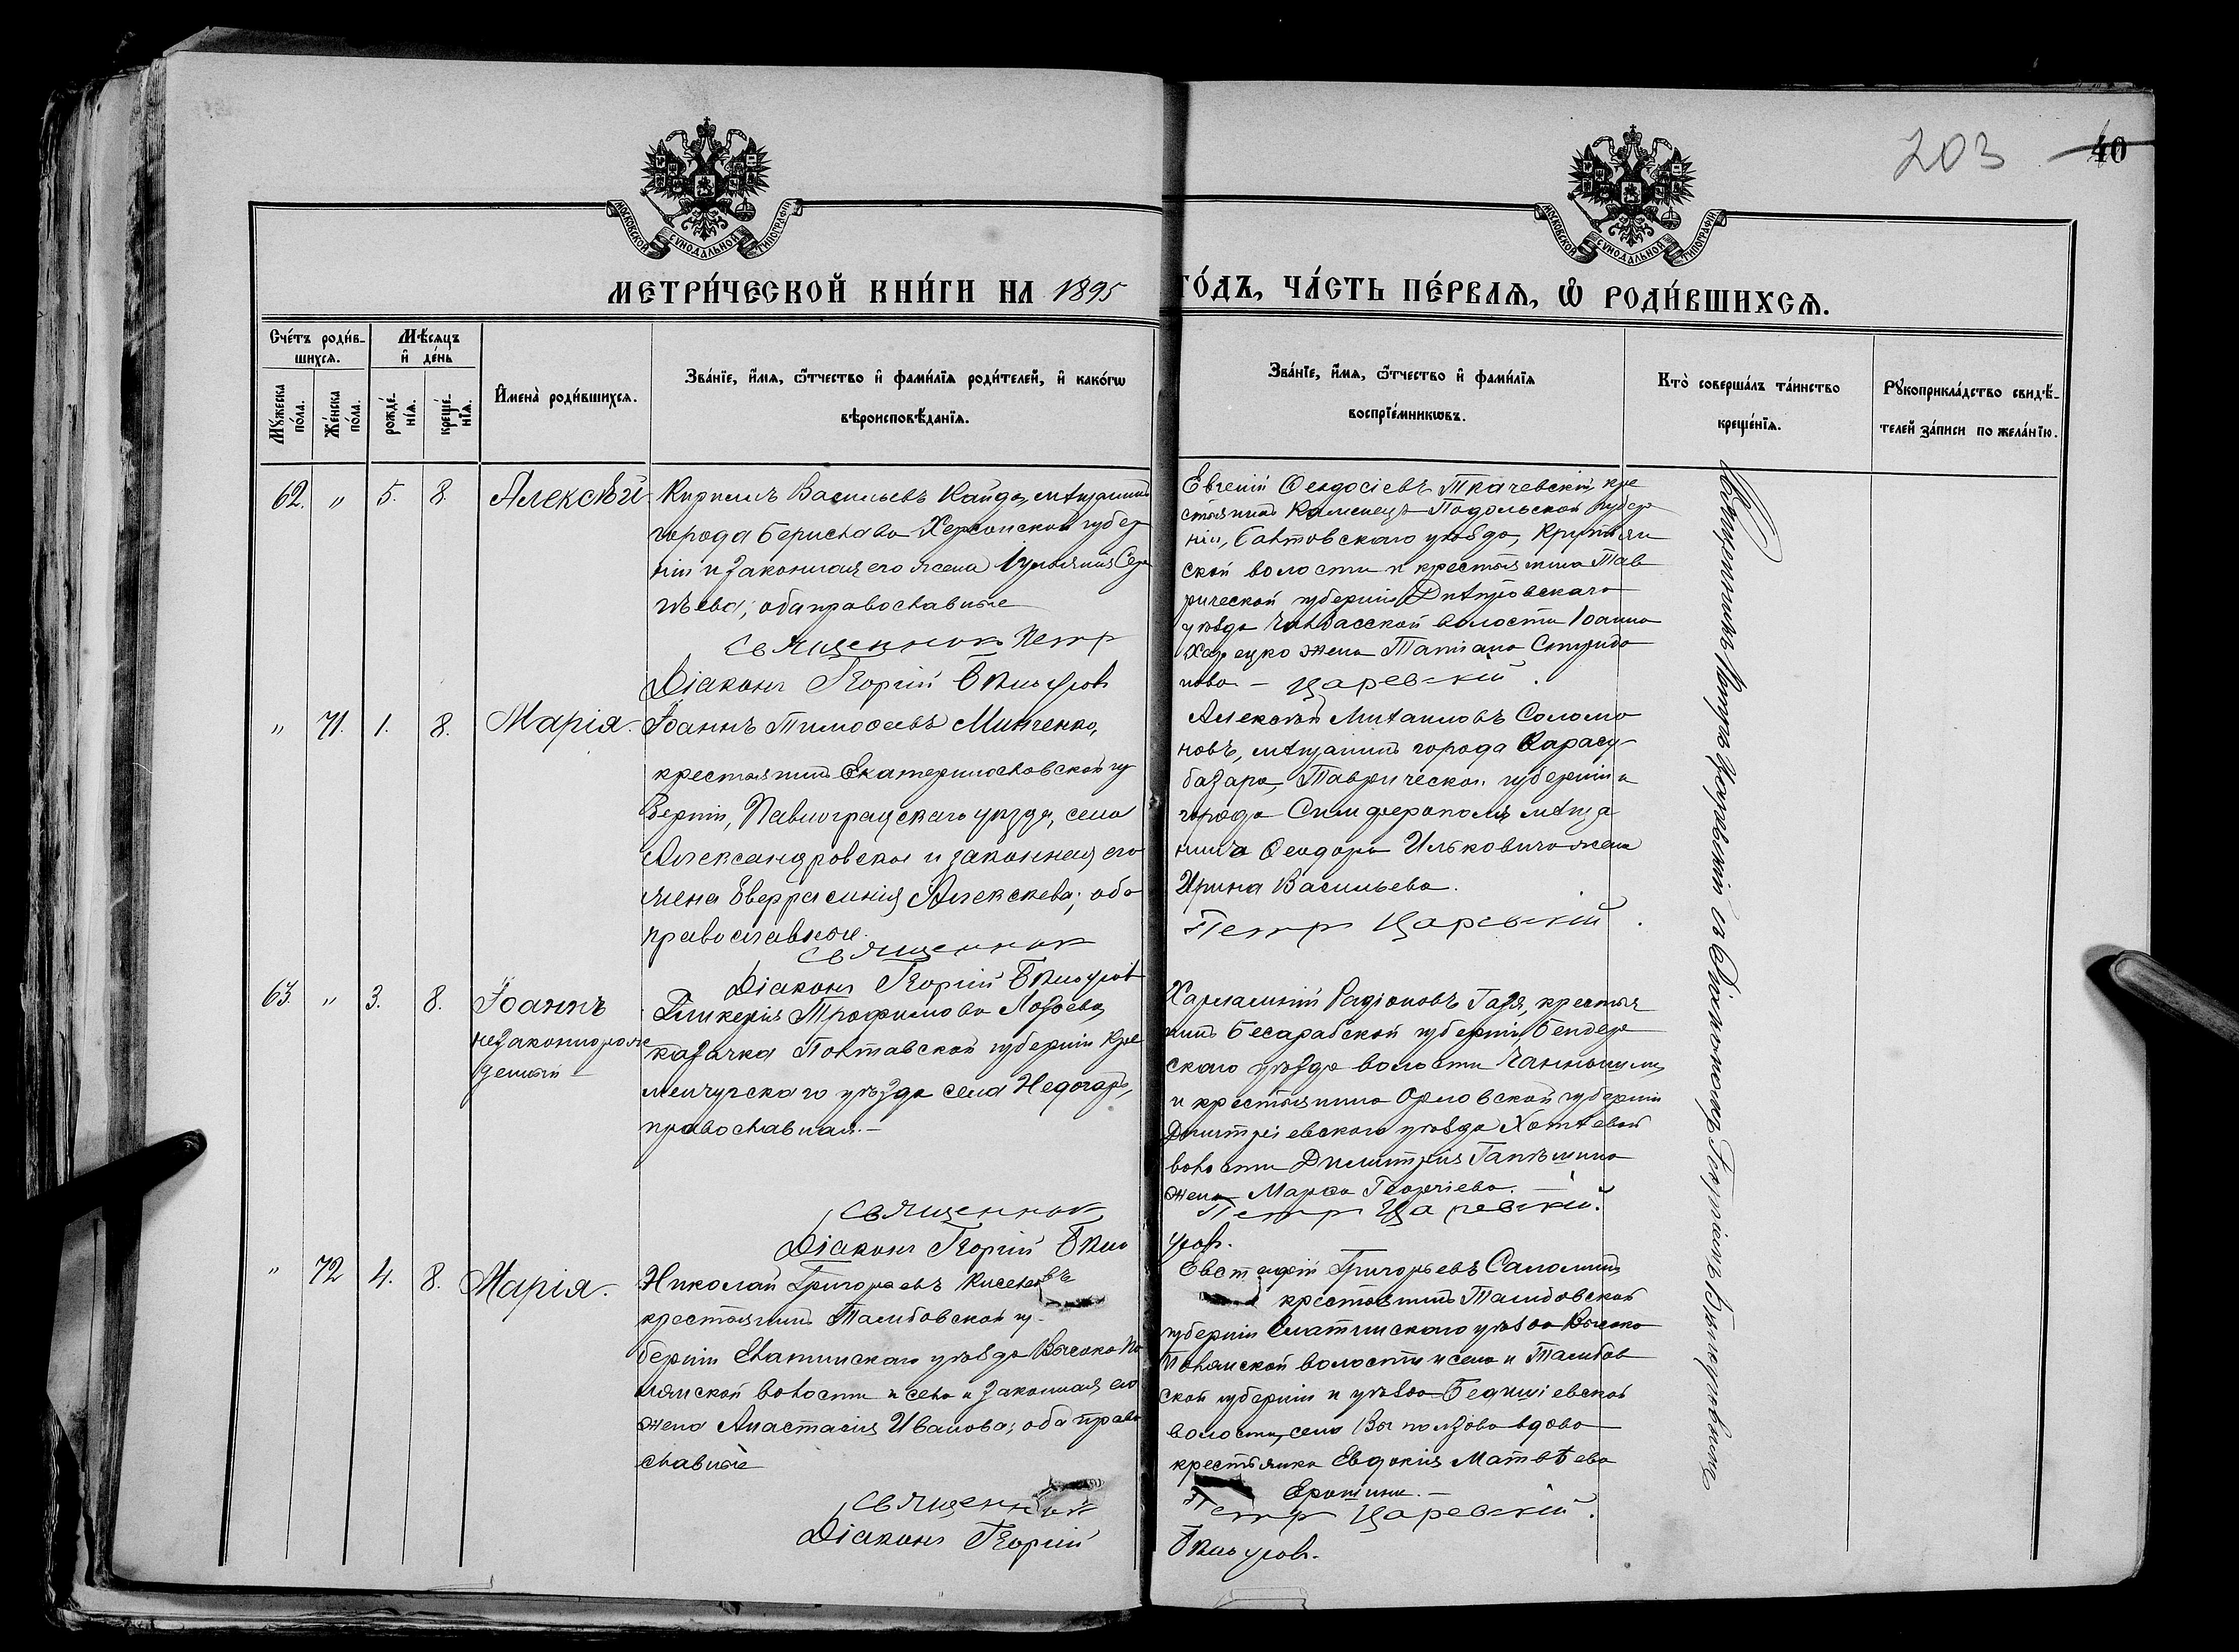 203
40
МОСКОВСКОЙ СѴНОДАЛЬНОЙ ТИПОГРАФІИ
МОСКОВСКОЙ СѴНОДАЛЬНОЙ ТИПОГРАФІИ
МЕТРИ́ЧЕСКОЙ КНИ́ГИ НА 1895 ГО́ДЪ, ЧА́СТЬ ПЕ́РВАѦ, Ѡ҆ РОДИ́ВШИХСѦ.
Сче́тъ роди́в-
шихсѧ.
Мꙋ́жеска по́ла.
Же́нска по́ла.
Мѣ́сѧцъ
и҆ де́нь
рожде́-
нїѧ.
креще́-
нїѧ.
И҆мена̀ роди́вшихсѧ.
Зва́нїе, и҆́мѧ, ѻ҆́тчество и҆ фами́лїѧ роди́телей, и҆ како́гѡ
вѣроисповѣ́данїѧ.
Зва́нїе, и҆́мѧ, ѻ҆́тчество и҆ фами́лїѧ
воспрїе́мникѡвъ.
Кто̀ соверша́лъ та́инство
креще́нїѧ.
Рꙋкоприкла́дство свидѣ́-
телей за́писи по жела́нїю.
62. " 5. 8. Алексѣй
Кириллъ Васильевъ Кайда, мѣщанинъ
города Берислава Херсонской губер
ніи и законная его жена Іуліянія Сер
гѣева; оба православные
Священник Петр
Діаконъ Георгій
Евгеній Ѳеодосіевъ Ткачевскій, кре
стьянинъ Каменецъ-Подольской губер
ніи, Балтовскаго уѣзда, Крутян
ской волости и крестьянина Тав
рической губерніи Днѣпровскаго
уѣзда Чалбасской волости Іоанна
жена Татіана Спиридо
нова. – Царевскій.
" 71. 1. 8. Марія.
Іоаннъ Тимоѳеевъ Митченко,
крестьянинъ Екатеринославской гу
берніи, Павлоградскаго уѣзда, села
Александровское и законная его
жена Евфрасинія Алексѣева; оба
православные.
Священник
Діаконъ Георгій
Алексѣй Михаиловъ Соломо
новъ, мѣщанинъ города Карасу-
базара, Таврической губерніи и
города Симферополя мѣща
нина Ѳеодора Ильковича жена
Ирина Васильева.
Петр Царевскій.
63. " 3. 8. Іоаннъ
незаконнорож
денный
Гликерія Трофимова Лобзева,
казачка Полтавской губерніи Кре
менчугскаго уѣзда села Недогарь,
православная. –
Священник
Діаконъ Георгій
Харлампій Радіоновъ Газя, крестья
нинъ Бесарабской губерніи Бендер
скаго уѣзда волости
и крестьянина Орловской губерніи
Дмитріевскаго уѣзда Хотѣевой
волости Димитрія Гапѣшина
жена Марѳа Георгіева.
Петр Царевскій.
" 72 4. 8. Марія.
Николай Григорьевъ Киселевъ
крестьянинъ Тамбовской гу-
берніи Елатмскаго уѣзда Высоко По
лянской волости и села и законная его
жена Анастасія Иванова; оба право
славные
Священник
Діаконъ Георгій
Евстафій Григорьевъ Саломинъ
крестьянинъ Тамбовской
губерніи Елатмскаго уѣзда Высоко
Полянской волости и села и Тамбов
ской губерніи и уѣзда
волости, села вдова
крестьянка Евдокія Матвѣева
Ерошина. –
Петр Царевскій.
Священникъ Петръ Царевскій съ Діакономъ Георгіемъ